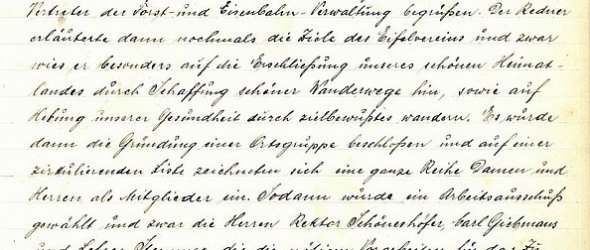 Vertreter der Forst-und Eisenbahn-Verwaltung begrüßen. Der Redner
erläuterte dann nochmals die Ziele des Eifelvereins und zwar
wies er besonders auf die Erschließung unseres schönen Heimat-
landes durch Schaffung schöner Wanderwege hin, sowie auf
Hebung unserer Gesundheit durch zielbewußtes wandern. Es wurde
dann die Gründung einer Ortsgruppe beschloßen und auf einer
zirkulierenden Liste zeichneten sich eine ganze Reihe Damen und
Herren als Mitglieder ein. Sodann wurde ein Arbeitsausschuß
gewählt und zwar die Herren Rektor Schöneshöfer, Carl Giebmans
und Lehrer die die Vorarbeiten für das